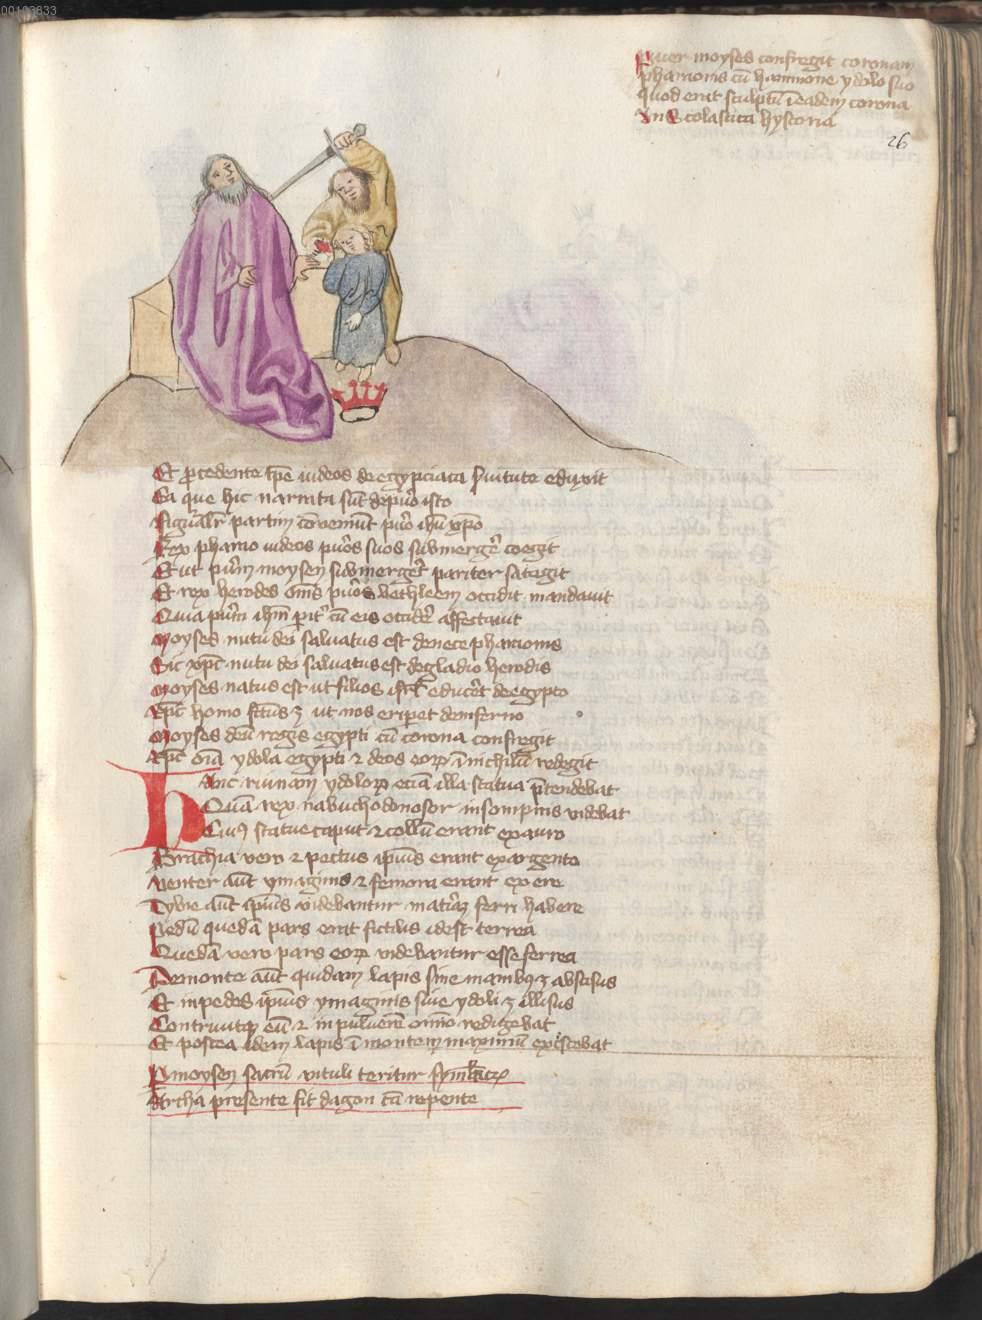 00103833
Puer moyses confregit coronam
pharaonis cū hammone ydolo suo
quod erat sculptū ī eadem corona
In Scolastica hystoria
26
Et procedente tp̄e iudeos de egypciaca ſuitute eduxit
Ea que hic narrata sūt de puo isto
Figural̄r partim conveniūt puo ihū xp̄o
Rex pharao iudeos pu̓os suos submerge̓ coegit
Et ut pu̓m moysen submerge̓t pariter sategit
Et rex herodes om̄s puo̓s bethleem occidi mandauit
Quia pu̓m ihm̄ pit̓ cū eis occide̓ affectauit
Moyses nutu dei saluatus est de nece pharaonis
Sic xp̄c nutu dei saluatus est de gladio herodis
Moyses natus est ut filios isrl̄ educe̓t de egypto
Xp̄c homo f̄cūs ꝫ ut nos eriperet de inferno
Moyses deū regis egypti cū corona confregit
Xp̄c oīa ydola egypti ⁊ deos eoꝝ ī nichilū redegit
Hanc ruinam ydoloꝝ eciā illa statua p̄tendebat
Quā rex nabuchodonosor in sompnis videbat
Cuiꝰ statue caput ⁊ collū erant ex auro
Brachia vero ⁊ pectus ip̄ius erant ex argento
Venter aūt ymaginis ⁊ femora erant ex ere
Tybie aūt ip̄ius videbantur mat̓iā ferri habere
Pedū quedā pars erat fictilis id est terrea
Quedā vero pars eoꝝ videbantur esse ferrea
De monte aūt quidam lapis sine manibꝫ ꝫ abscisus
Et in pedes ip̄ius ymaginis siue ydoli ꝫ illisus
Contriuitqꝫ eū ⁊ in puluerē om̄ino redigebat
Et postea idem lapis ī montem maximū excrescebat
P moysen sacrū vituli teritur symlacrꝝ
Archa presente fit dagon tūca repente